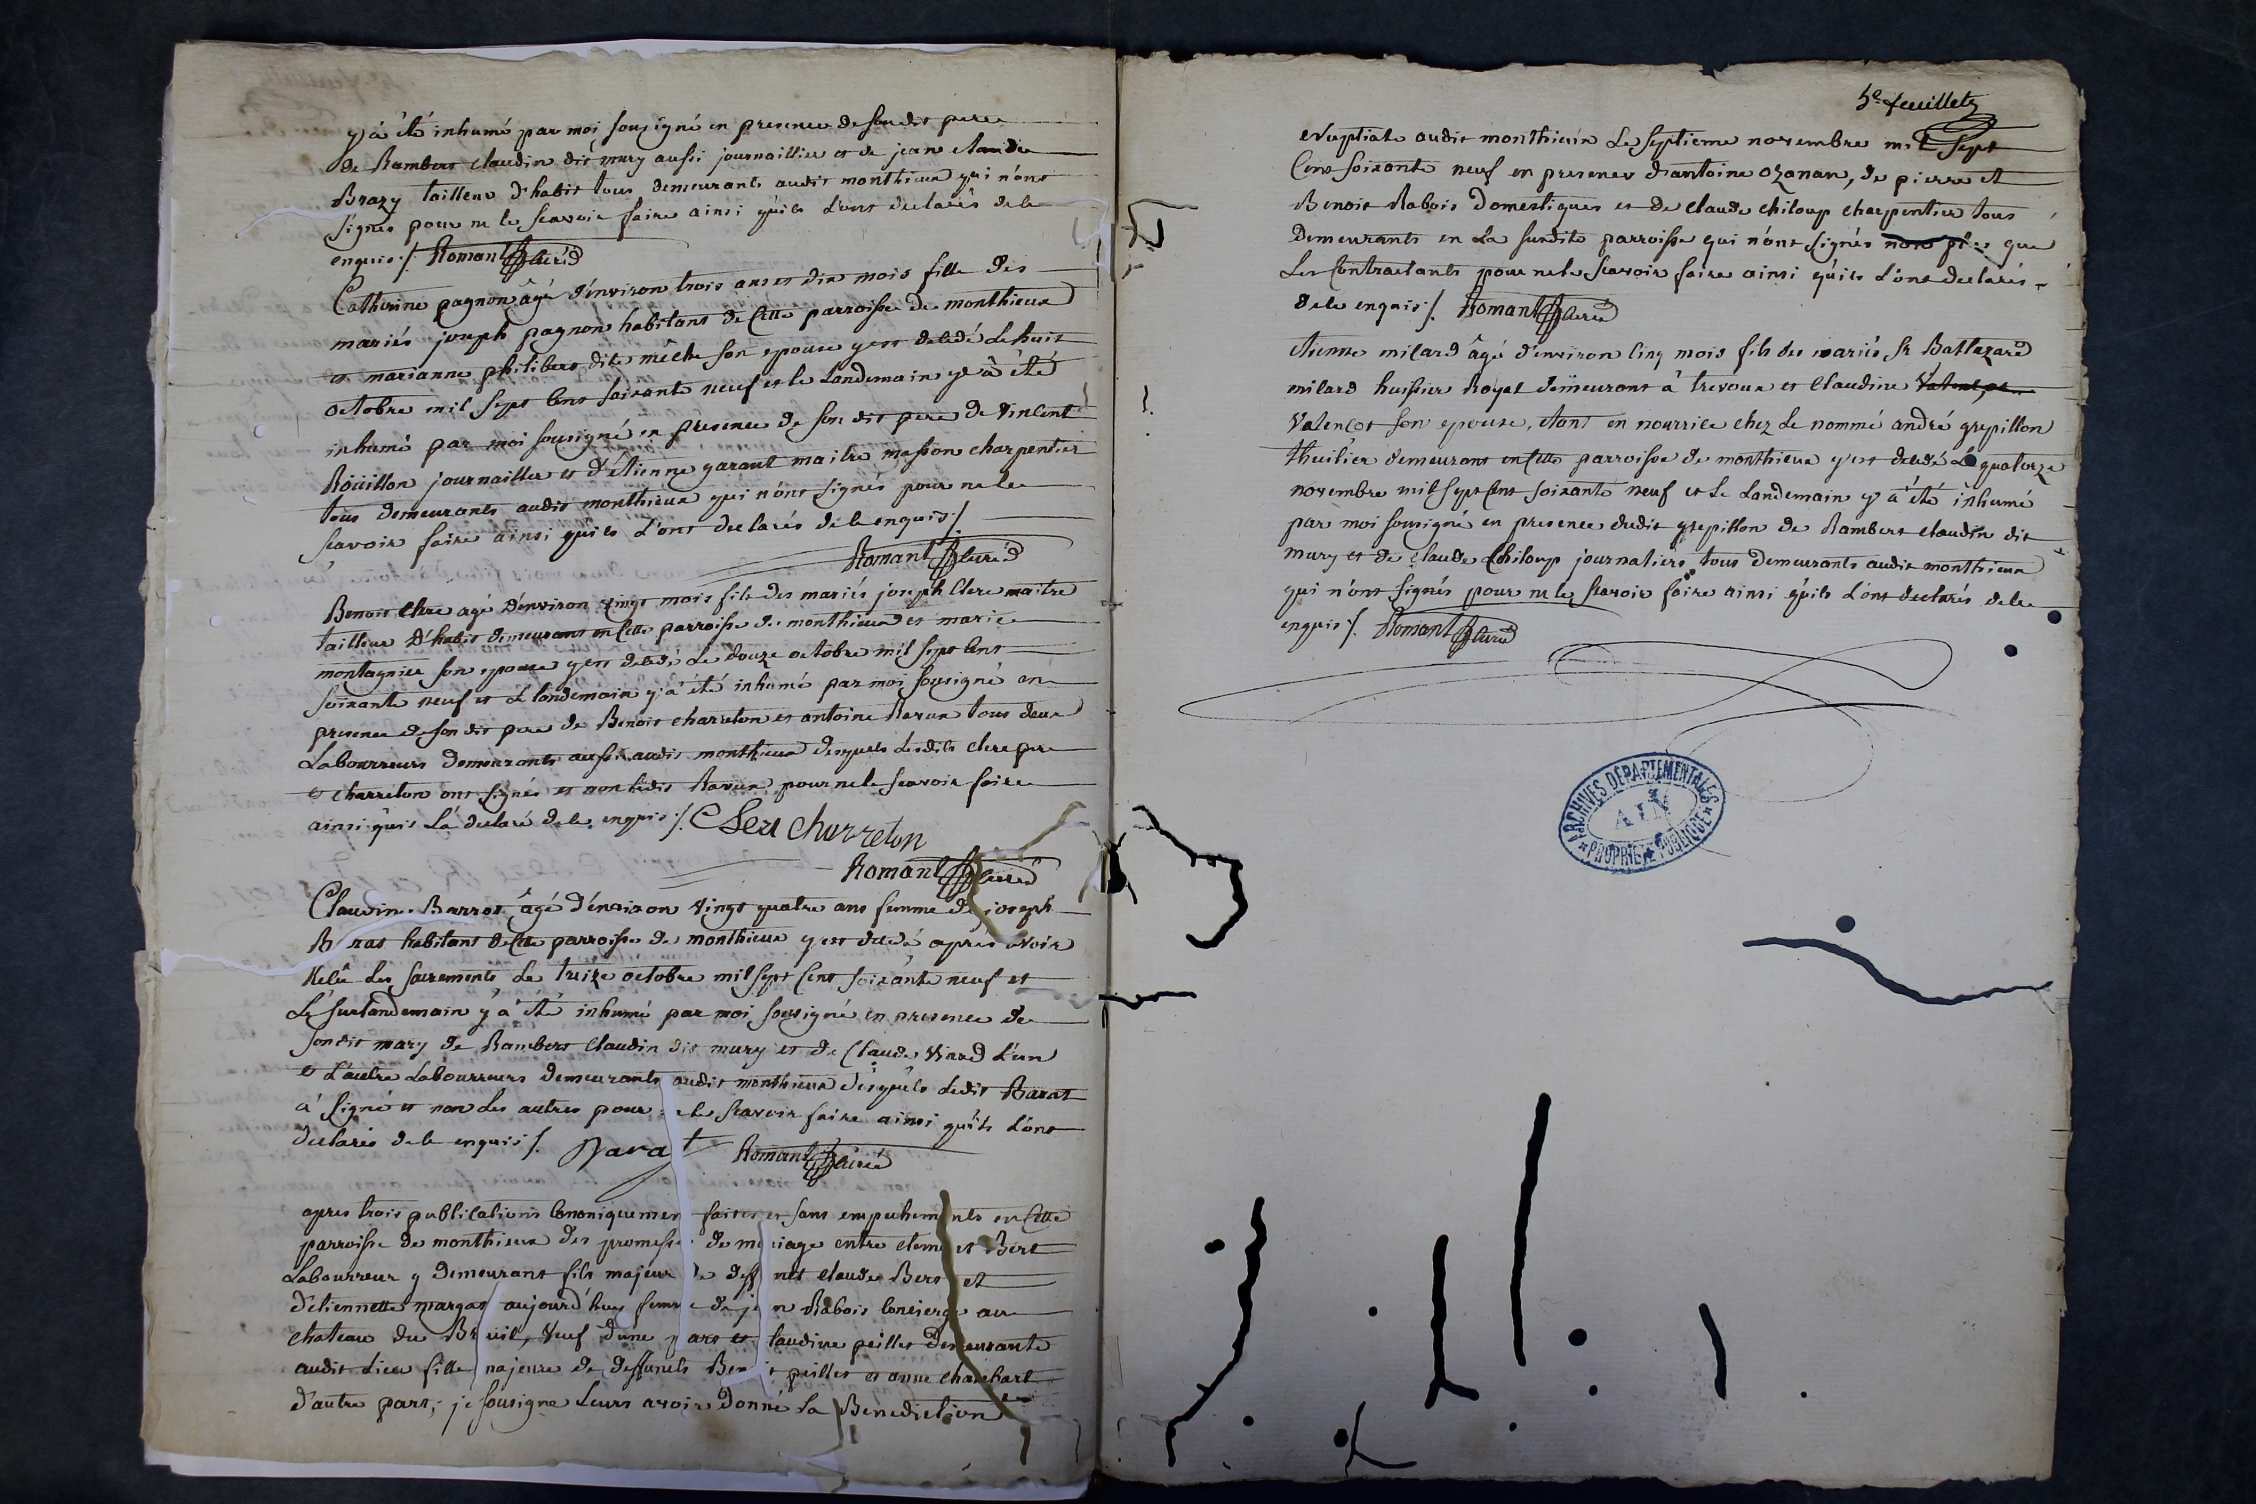 y à été inhumé par moi sousigné en presence de son dit pere
de Rambert claudin dit mury aussi journaillier et de jean claude
Brazy tailleur d'habit tous demeurants audit monthieux qui n'ont
signés pour ne le scavoir faire ainsi qu'ils l'ont declarés de le
enquis ./. Romant Curé
Catherine pagnon âgé d'environ trois ans et dix mois fille des
mariés joseph pagnon habitant de Cette parroisse de monthieux
et marianne philibert dite mêche son epouse y est decedé Le huit
octobre mil sept Cent soixante neuf et le Landemain y à été
inhumé par moi sousigné en presence de son dit pere de Vincent
Roüillon journaillier et d'Etienne garant maitre masson charpentier
tous demeurants audit monthieux qui n'ont signés pour ne le
scavoir faire ainsi qu'ils l'ont declarés de le enquis ./.
Romant Curé
Benoit Clere agé d'environ vingt mois fils des mariés joseph Clere maitre
tailleur d'habit demeurant en Cette parroisse de monthieux et marie
montagnier son epouse y est decedé Le douze octobre mil sept Cent
soixante neuf et Le landemain y à été inhumé par moi sousigné en
presence de son dit pere de Benoit charreton et antoine Ravux tous deux
Labourreurs demeurants aussi audit monthieux desquels Lesdits clere pere
et charreton ont signés et non ledit Ravux pour ne le scavoir faire
ainsi qu'il L'à declaré de le enquis ./. Clere charreton
Romant Curé
Claudine Barrot âgé d'environ vingt quatre ans femme de joseph
B ras habitant de Cette parroisse de monthieux y est decedé après avoir
Reçû Les sacrements Le treize octobre mil sept Cent soixante neuf et
Le surlandemain y à été inhumé par moi sousigné en presence de
son dit mary de Rambert Claudin dit mury et de Claude Viard L'un
et L'autre Labourreurs demeurants audit monthieux desquels Ledit Barat
à signé et non Les autres pour ne le scavoir faire ainsi qu'ils L'ont
declarés de le enquis ./. Barat Romant Curé
apres trois publications Canoniquement faites et sans empechements en Cette
parroisse de monthieux des promesses de mariage entre clement Bert
Labourreur y demeurant fils majeur de deffunct Claude Bert et
d'etiennette margat aujourd'huy femme de jean Rabois Concierge au
chateau du Breuil, Veuf d'une part et Claudine peillet demeurante
audit Lieu fille majeure de deffuncts Benoit peillet et anne
d'autre part, je sousigne Leurs avoir donné La Benediction
5e feuillet
Nuptiale audit monthieux Le septieme novembre mil sept
Cent soixante neuf en presence d'antoine Ozanan, de pierre et
Benoit Rabois Domestiques et de Claude Chiloup charpentier tous
Demeurants en La susdite parroisse qui n'ont signés non plus que
Les Contractants pour ne le scavoir faire ainsi qu'ils L'ont declarés
de le enquis ./. Romant Curé
Etienne milard âgé d'environ Cinq mois fils des mariés Sr Baltazard
milard huissier Royal demeurant à trevoux et Claudine
Valençot son epouse, étant en nourrice chez Le nommé andré grepillon
thuilier demeurant en Cette parroisse de monthieux y est decedé Le quatorze
novembre mil sept Cent soixante neuf et Le Landemain y à été inhumé
par moi sousigné en presence dudit grepillon de Rambert claudin dit
mury et de claude Chiloup journaliers tous demeurants audit monthieux
qui n'ont signés pour ne le scavoir faire ainsi qu'ils L'ont declarés de le
enquis ./. Romant Curé
ARCHIVES DÉPARTEMENTALES
AIN
PROPRIÉTÉ PUBLIQUE